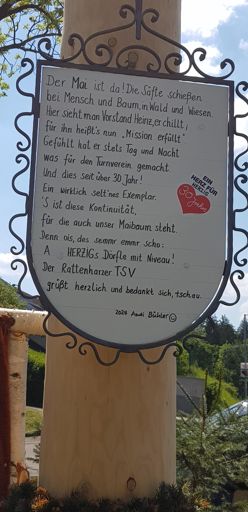 TSV
Der Mai ist da! Die Säfte schießen
bei Mensch und Baum, in Wald und Wiesen.
Hier sieht man Vorstand Heinz, er chillt,
für ihn heißt's nun „Mission erfüllt"
Gefühlt hat er stets Tag und Nacht
was für den Turnverein gemacht.
Und dies seit über 30 Jahr!
Ein wirklich selt'nes Exemplar.
'S ist diese Kontinuität,
für die auch unser Maibaum steht.
Denn ois, des semmr emmr scho:
A HERZIGs Dörfle mit Niveau!
Der Rattenharzer TSV
grüßt herzlich und bedankt sich, tschau.
2024
EIN
HERZ FÜR
30 Jahre